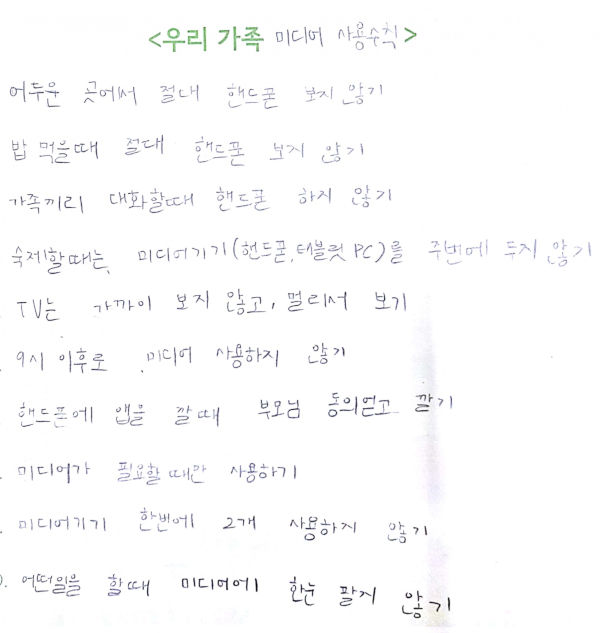 <우리 가족 미디어 사용수칙>
어두운 곳에서 절대 핸드폰 보지 않기
밥 먹을때 절대 핸드폰 보지 않기
가족끼리 대화할때 핸드폰 하지 않기
숙제할때는, 미디어기기(핸드폰, 태블릿 PC)를 주변에 두지 않기
. TV는 가까이 보지 않고, 멀리서 보기
. 9시 이후로 미디어 사용하지 않기
핸드폰에 앱을 깔때 부모님 동의얻고 깔기
. 미디어가 필요할때만 사용하기
. 미디어기기 한번에 2개 사용하지 않기
0. 어떤일을 할때 미디어에 한눈 팔지 않기